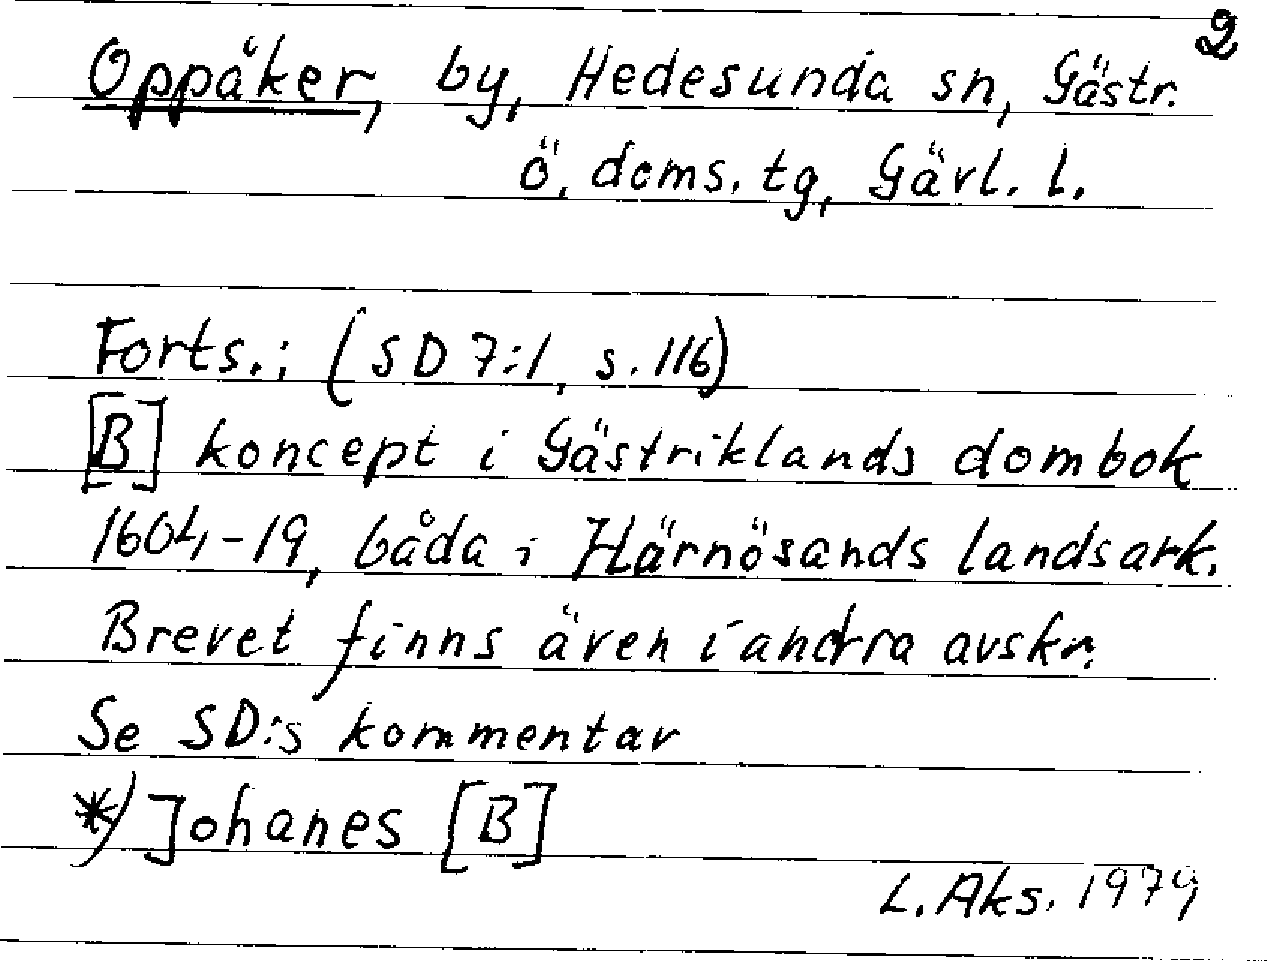 2
Oppåker, by, Hedesunda sn, Gästr.
ö. doms. tg, Gävl. l.
Forts.; (SD 7:1, s. 116)
[B] koncept i Gästriklands dombok
1604-19, båda i Härnösands landsark.
Brevet finns även i andra avskr.
Se SD:s kommentar
*) Johanes [B]
L. Aks. 1979